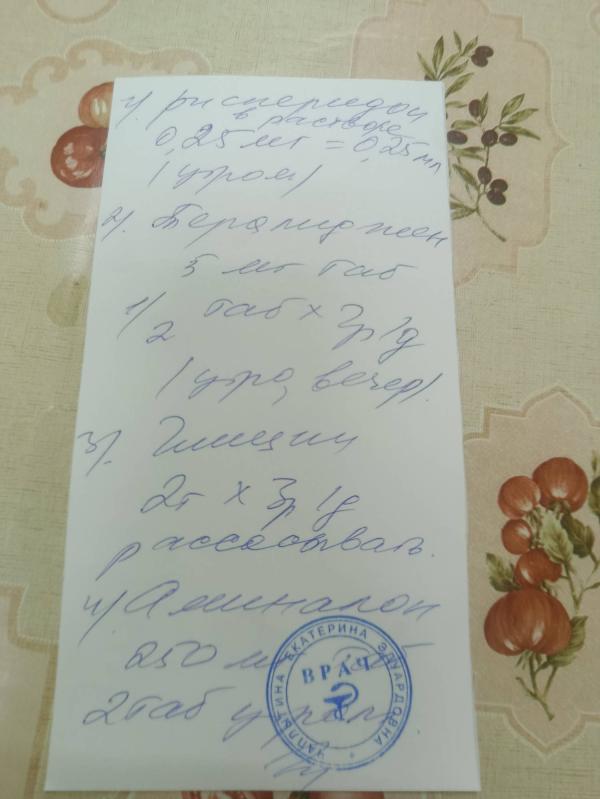 1/. рисперидон
в растворе
0,25 мг = 0,25 мл
/утром/
2/. Тералиджен
5 мг таб
1/2 таб х 3р/д
/утро, вечер/.
3/. Глицин
2т х 3р/д
рассасывать.
4/ Аминалон
250 мг таб
2 таб утром
ЧАПЛЫГИНА ЕКАТЕРИНА ЭДУАРДОВНА
ВРАЧ